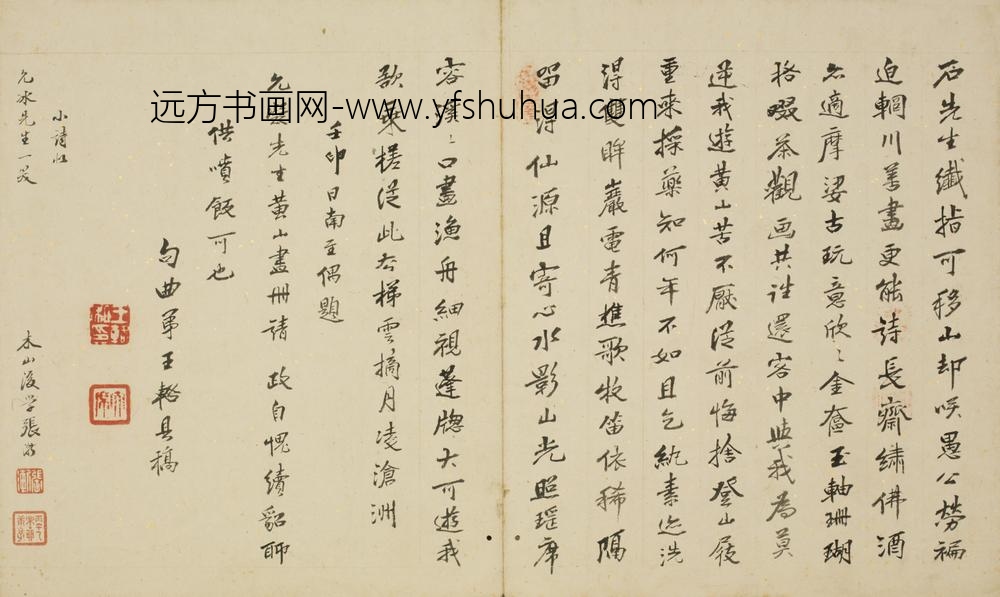 石先生纖指可移山却咲愚公勞褊
迫輞川善畫更能詩長齋繡佛酒
亦適摩娑古玩意欣〻金奩玉軸珊瑚
格啜茶觀画共詼還客中與我為莫
逆我遊黄山苦不厭從前悔捨登山屐
重來採藥知何年不如且乞紈素迹洗
得雙眸巖電青樵歌牧笛依稀隔
留得仙源且寄心水影山光照瑶席
溪〻口畫漁舟細視蓬牕大可遊我
欲乗槎從此去梯雲摘月凌滄洲
壬卯日南至偶題
先生黄山畫冊請 政自愧續貂聊
供噴飯可也
句曲弟王輅具稿
小詩收
允冰先生一笑
木山後學張
远方书画网-www.yfshuhua.com